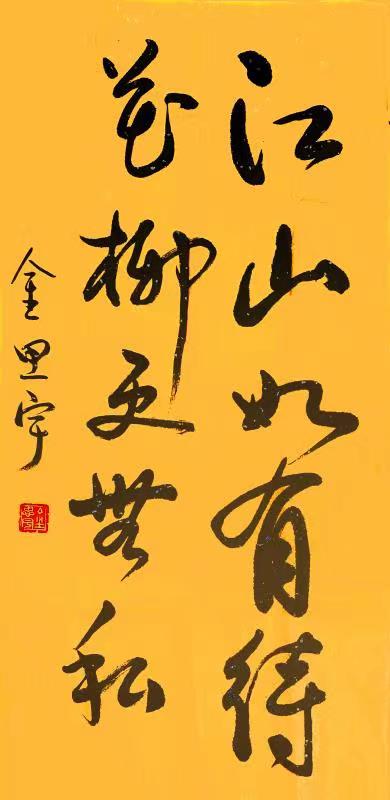 江山如有待
花柳更無私
金思宇